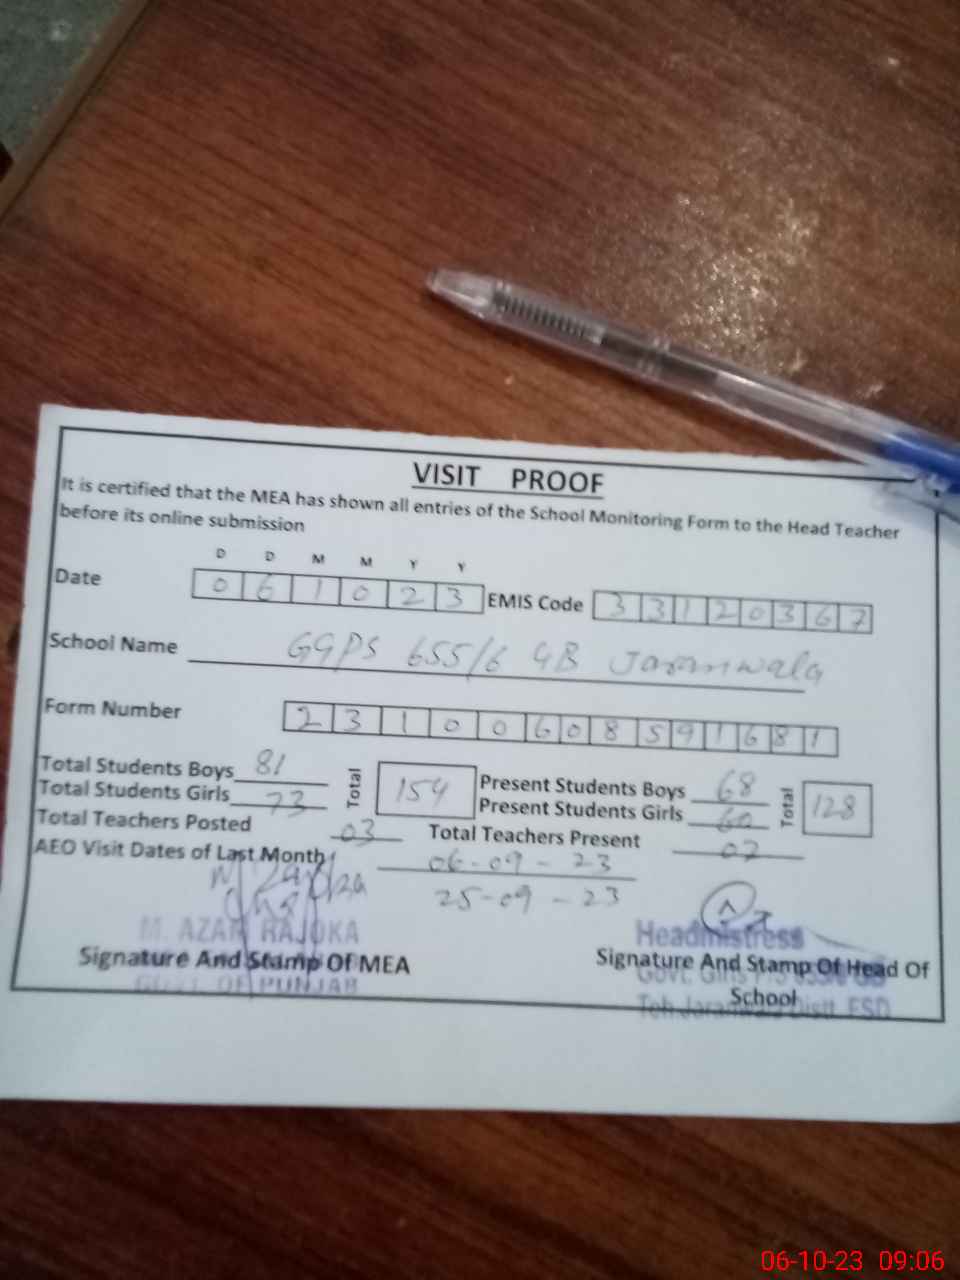 VISIT PROOF
It is certified that the MEA has shown all entries of the School Monitoring Form to the Head Teacher
before its online submission
D D M M Y Y
Date 0 6 1 0 2 3 EMIS Code 3 3 1 2 0 3 6 7
School Name GGPS 655/6 GB Jaranwala
Form Number 2 3 1 0 0 6 0 8 5 9 1 6 8 1
Total Students Boys 81 Total 154 Present Students Boys 68 Total 128
Total Students Girls 73 Present Students Girls 60
Total Teachers Posted 03 Total Teachers Present 02
AEO Visit Dates of Last Month 06-09-23
25-09-23
M. AZAM RAJOKA
Headmistress
Signature And Stamp Of MEA
Signature And Stamp Of Head Of
School
GOVT. OF PUNJAB
Govt. Girls
Teh. Jaranwala Distt. FSD
06-10-23 09:06